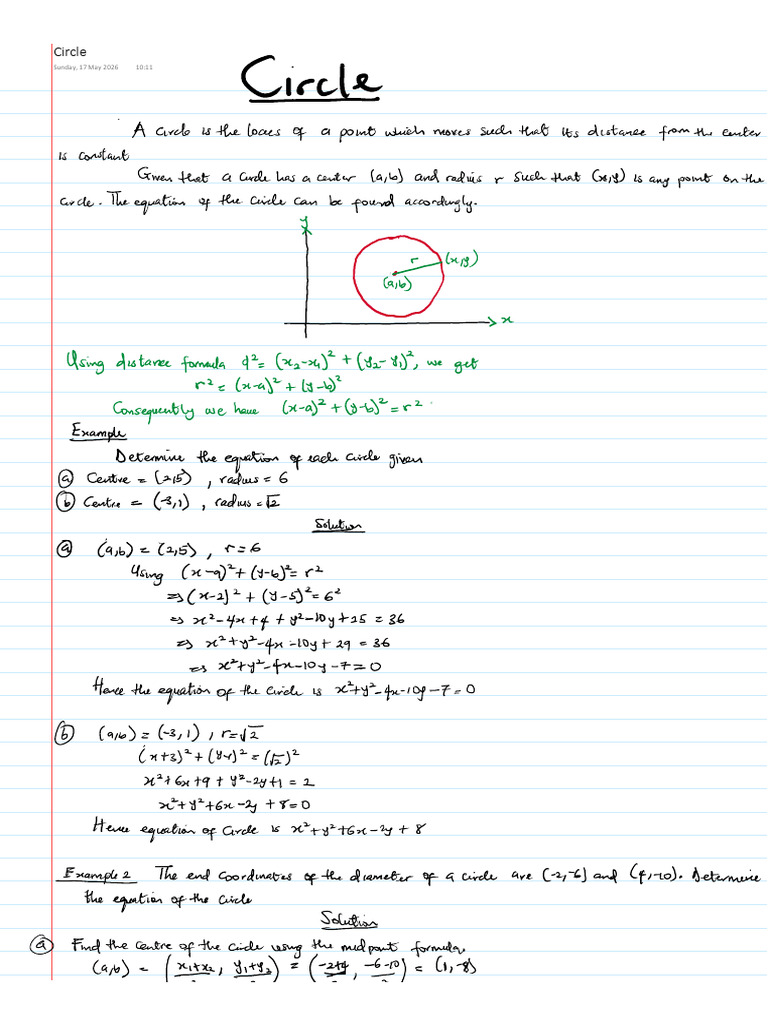 Circle
Sunday, 17 May 2026 10:11
Circle
A Circle is the locus of a point which moves such that its distance from the center
is constant
Given that a circle has a center (a,b) and radius r such that (x,y) is any point on the
circle. The equation of the circle can be found accordingly.
y
r (x,y)
(a,b)
x
Using distance formula d² = (x₂-x₁)² + (y₂-y₁)², we get
r² = (x-a)² + (y-b)²
Consequently we have (x-a)² + (y-b)² = r²
Example
Determine the equation of each circle given
(a) Centre = (2,5), radius = 6
(b) Centre = (-3,1), radius = √2
Solution
(a) (a,b) = (2,5), r = 6
Using (x-a)² + (y-b)² = r²
⇒ (x-2)² + (y-5)² = 6²
⇒ x²-4x+4 + y²-10y+25 = 36
⇒ x²+y²-4x-10y+29 = 36
⇒ x²+y²-4x-10y-7=0
Hence the equation of the circle is x²+y²-4x-10y-7=0
(b) (a,b) = (-3,1), r=√2
(x+3)² + (y-1)² = (√2)²
x²+6x+9 + y²-2y+1 = 2
x²+y²+6x-2y+8=0
Hence equation of Circle is x²+y²+6x-2y+8
Example 2 The end coordinates of the diameter of a circle are (-2,-6) and (4,-10). Determine
the equation of the circle
Solution
(a) Find the centre of the circle using the midpoint formula.
(a,b) = (x₁+x₂, y₁+y₂) = (-2+4, -6-10) = (1,-8)